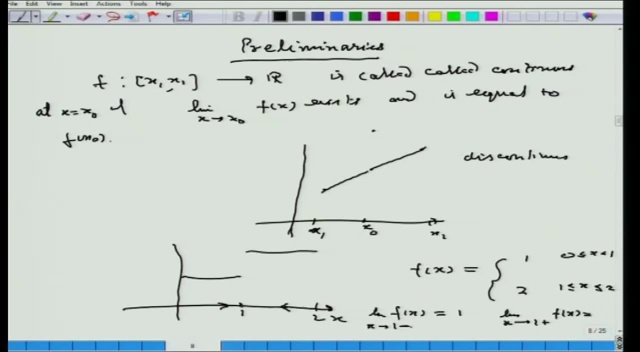 File Edit View Insert Actions Tools Help
Preliminaries
f : [x₁, x₁] → ℝ is called called continuous
at x=x₀ if lim x→x₀ f(x) exists and is equal to
f(x₀).
discontinuous
x₁ x₀ x₂
f(x) = { 1 0≤x<1
2 1≤x≤2
1 2 x
lim x→1− f(x) = 1 lim x→1+ f(x)=
8 / 25
8